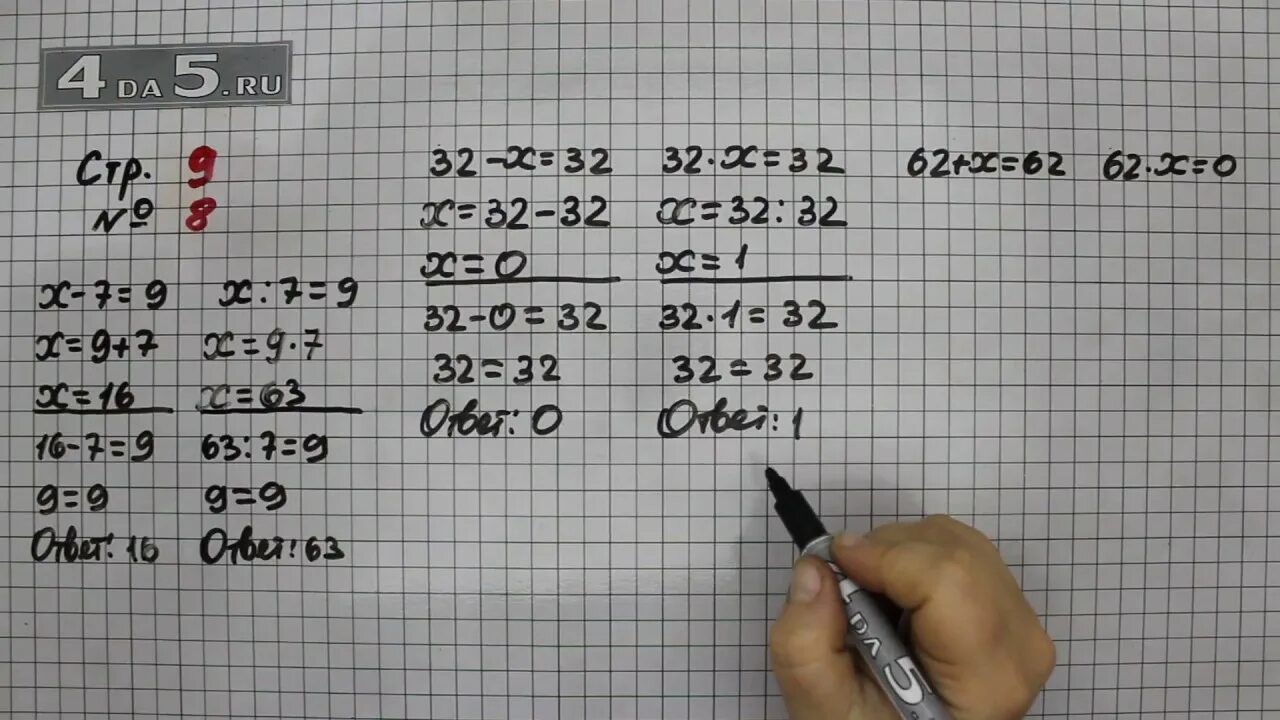 4DA5.RU
Стр. 9
№ 8
x-7=9
x=9+7
x=16
16-7=9
9=9
Ответ: 16
x:7=9
x=9·7
x=63
63:7=9
9=9
Ответ: 63
32-x=32
x=32-32
x=0
32-0=32
32=32
Ответ: 0
32·x=32
x=32:32
x=1
32·1=32
32=32
Ответ: 1
62+x=62
62·x=0
DA5